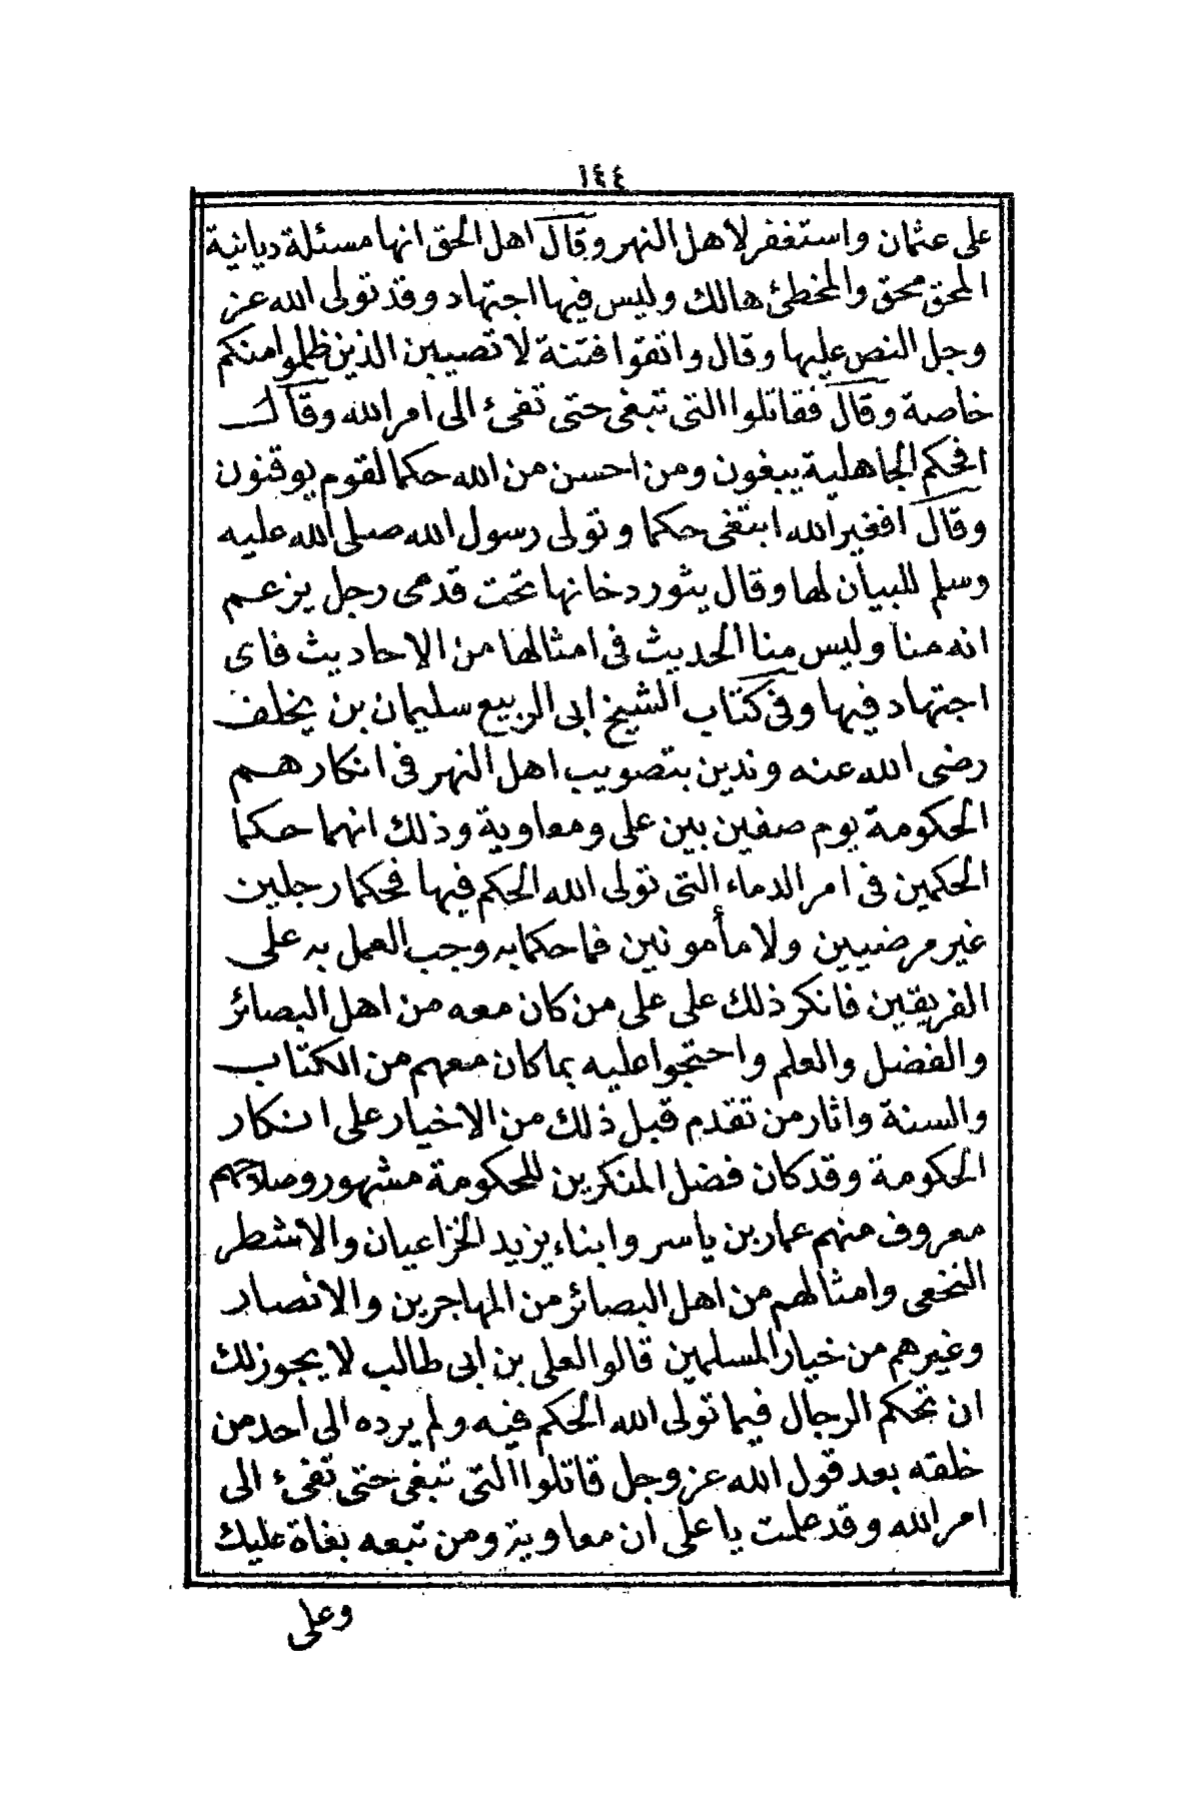 ١٤٤
على عثمان واستغفر لأهل النهر وقال اهل الحق انها مسئلة ديانية
المحق محق والمخطئ هالك وليس فيها اجتهاد وقد تولى الله عز
وجل النص عليها وقال واتقوا فتنة لا تصيبن الذين ظلموا منكم
خاصة وقال فقاتلوا التى تبغى حتى تفئ الى امر الله وقال
افحكم الجاهلية يبغون ومن احسن من الله حكما لقوم يوقنون
وقال افغير الله ابتغى حكما وتولى رسول الله صلى الله عليه
وسلم للبيان لها وقال يثور دخانها تحت قدمى رجل يزعم
انه منا وليس منا الحديث فى امثالها من الاحاديث فاى
اجتهاد فيها وفى كتاب الشيخ ابى الربيع سليمان بن يخلف
رضى الله عنه وندين بتصويب اهل النهر فى انكارهم
الحكومة يوم صفين بين على ومعاوية وذلك انهما حكما
الحكمين فى امر الدماء التى تولى الله الحكم فيها فحكما رجلين
غير مرضيين ولا مأمونين فما حكما به وجب العمل به على
الفريقين فانكر ذلك على على من كان معه من اهل البصائر
والفضل والعلم واحتجوا عليه بما كان معهم من الكتاب
والسنة واثار من تقدم قبل ذلك من الاخيار على انكار
الحكومة وقد كان فضل المنكرين للحكومة مشهور وصلاحهم
معروف منهم عمار بن ياسر وابناء يزيد الخزاعيان والاشطر
النخعى وامثالهم من اهل البصائر من المهاجرين والانصار
وغيرهم من خيار المسلمين قالوا لعلى بن ابى طالب لا يجوز لك
ان تحكم الرجال فيما تولى الله الحكم فيه ولم يرده الى احد من
خلقه بعد قول الله عز وجل قاتلوا التى تبغى حتى تفئ الى
امر الله وقد علمت يا على ان معاوية ومن تبعه بغاة عليك
وعلى